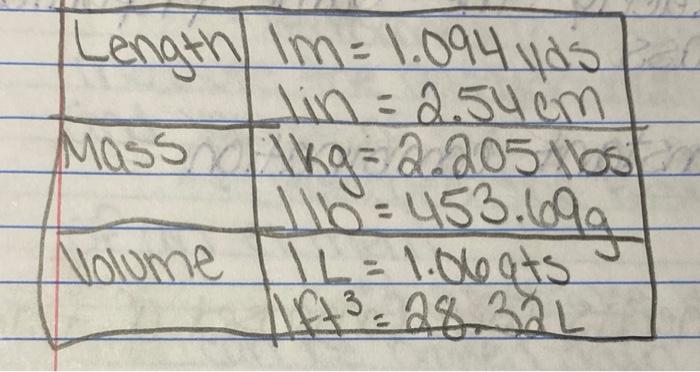 Length 1m = 1.094 yds
1in = 2.54 cm
Mass 1kg = 2.205 lbs
1lb = 453.69g
Volume 1L = 1.06 qts
1ft³ = 28.32L